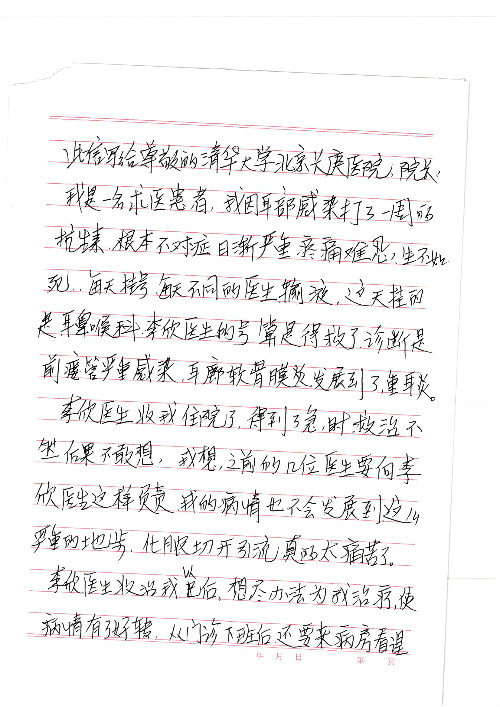 此信写给尊敬的清华大学北京长庚医院，院长：
我是一名求医患者，我因耳部感染打了一周的
抗生素，根本不对症日渐严重疼痛难忍，生不如
死，每天挂号每天不同的医生输液，这天挂的
是耳鼻喉科李欣医生的号算是得救了诊断是
前瘘管严重感染，耳廓软骨膜炎发展到了重耳炎。
李欣医生收我住院了，得到了急时救治不
然后果不敢想，我想，之前的几位医生要向李
欣医生这样负责，我的病情也不会发展到这么
严重的地步，化脓切开引流真的太痛苦了。
李欣医生收治我以后，想尽办法为我治疗，使
病情有了好转，从门诊下班后还要来病房看望
年 月 日 第 页